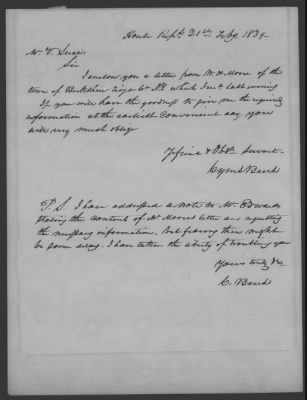 House Repts. 21st Feby 1839
Mr. 
Sir
I enclose you a letter from W. H. Moore of the
town of Tioga Co. which I rec'd last evening
If you will have the goodness to give me the required
information at the earliest convenient day you
will very much oblige
Yr friend & Obdt Servant
P.S. I have addressed a note to Mr. Edwards
stating the contents of Mr Moores letter and requesting
the necessary information. But fearing there might
be some delay. I have taken the liberty of troubling you
Yours truly &c
C.